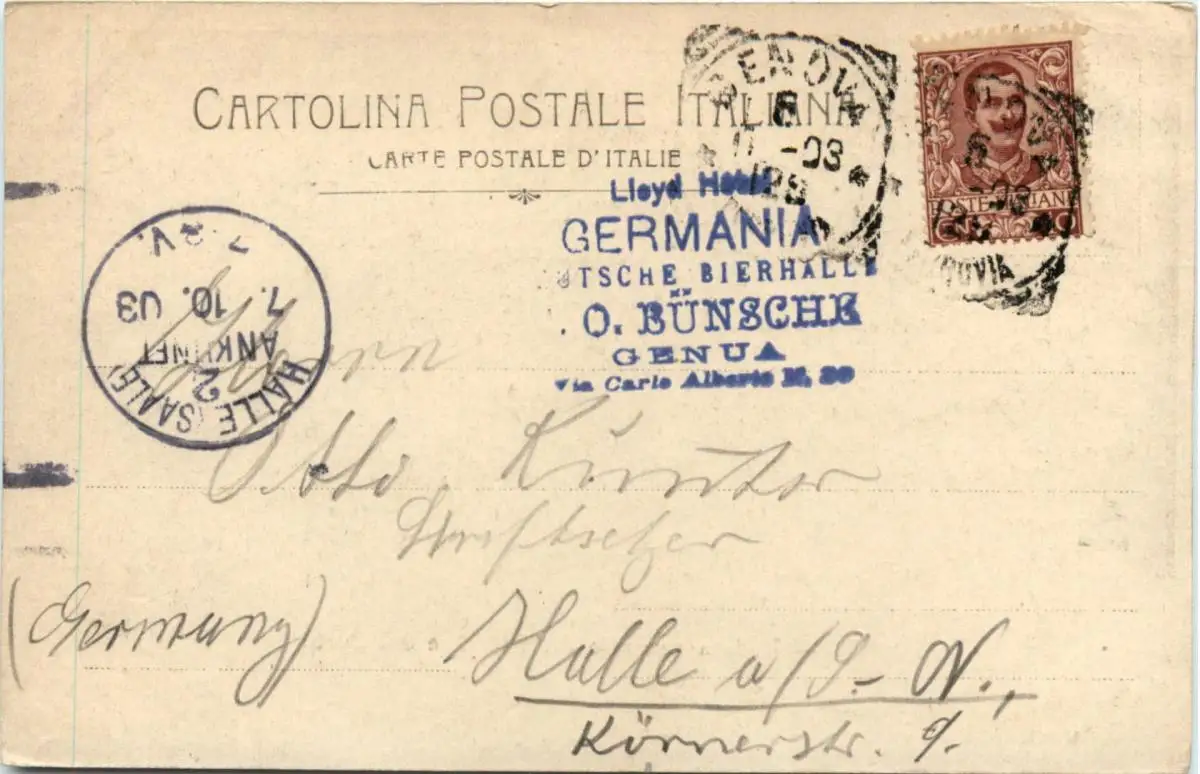 CARTOLINA POSTALE ITALIANA
CARTE POSTALE D'ITALIE
GENOVA
6
-03
Lloyd Hotel
GERMANIA
UTSCHE BIERHALLE
O. BÜNSCHE
GENUA
Via Carlo Alberto N. 39
HALLE (SAALE)
2
ANKUNFT
7. 10. 03
7-8V.
Herrn
Otto Kuntor
Schriftsetzer
(Germany)
Halle a/S - N.,
Körnerstr. 9.